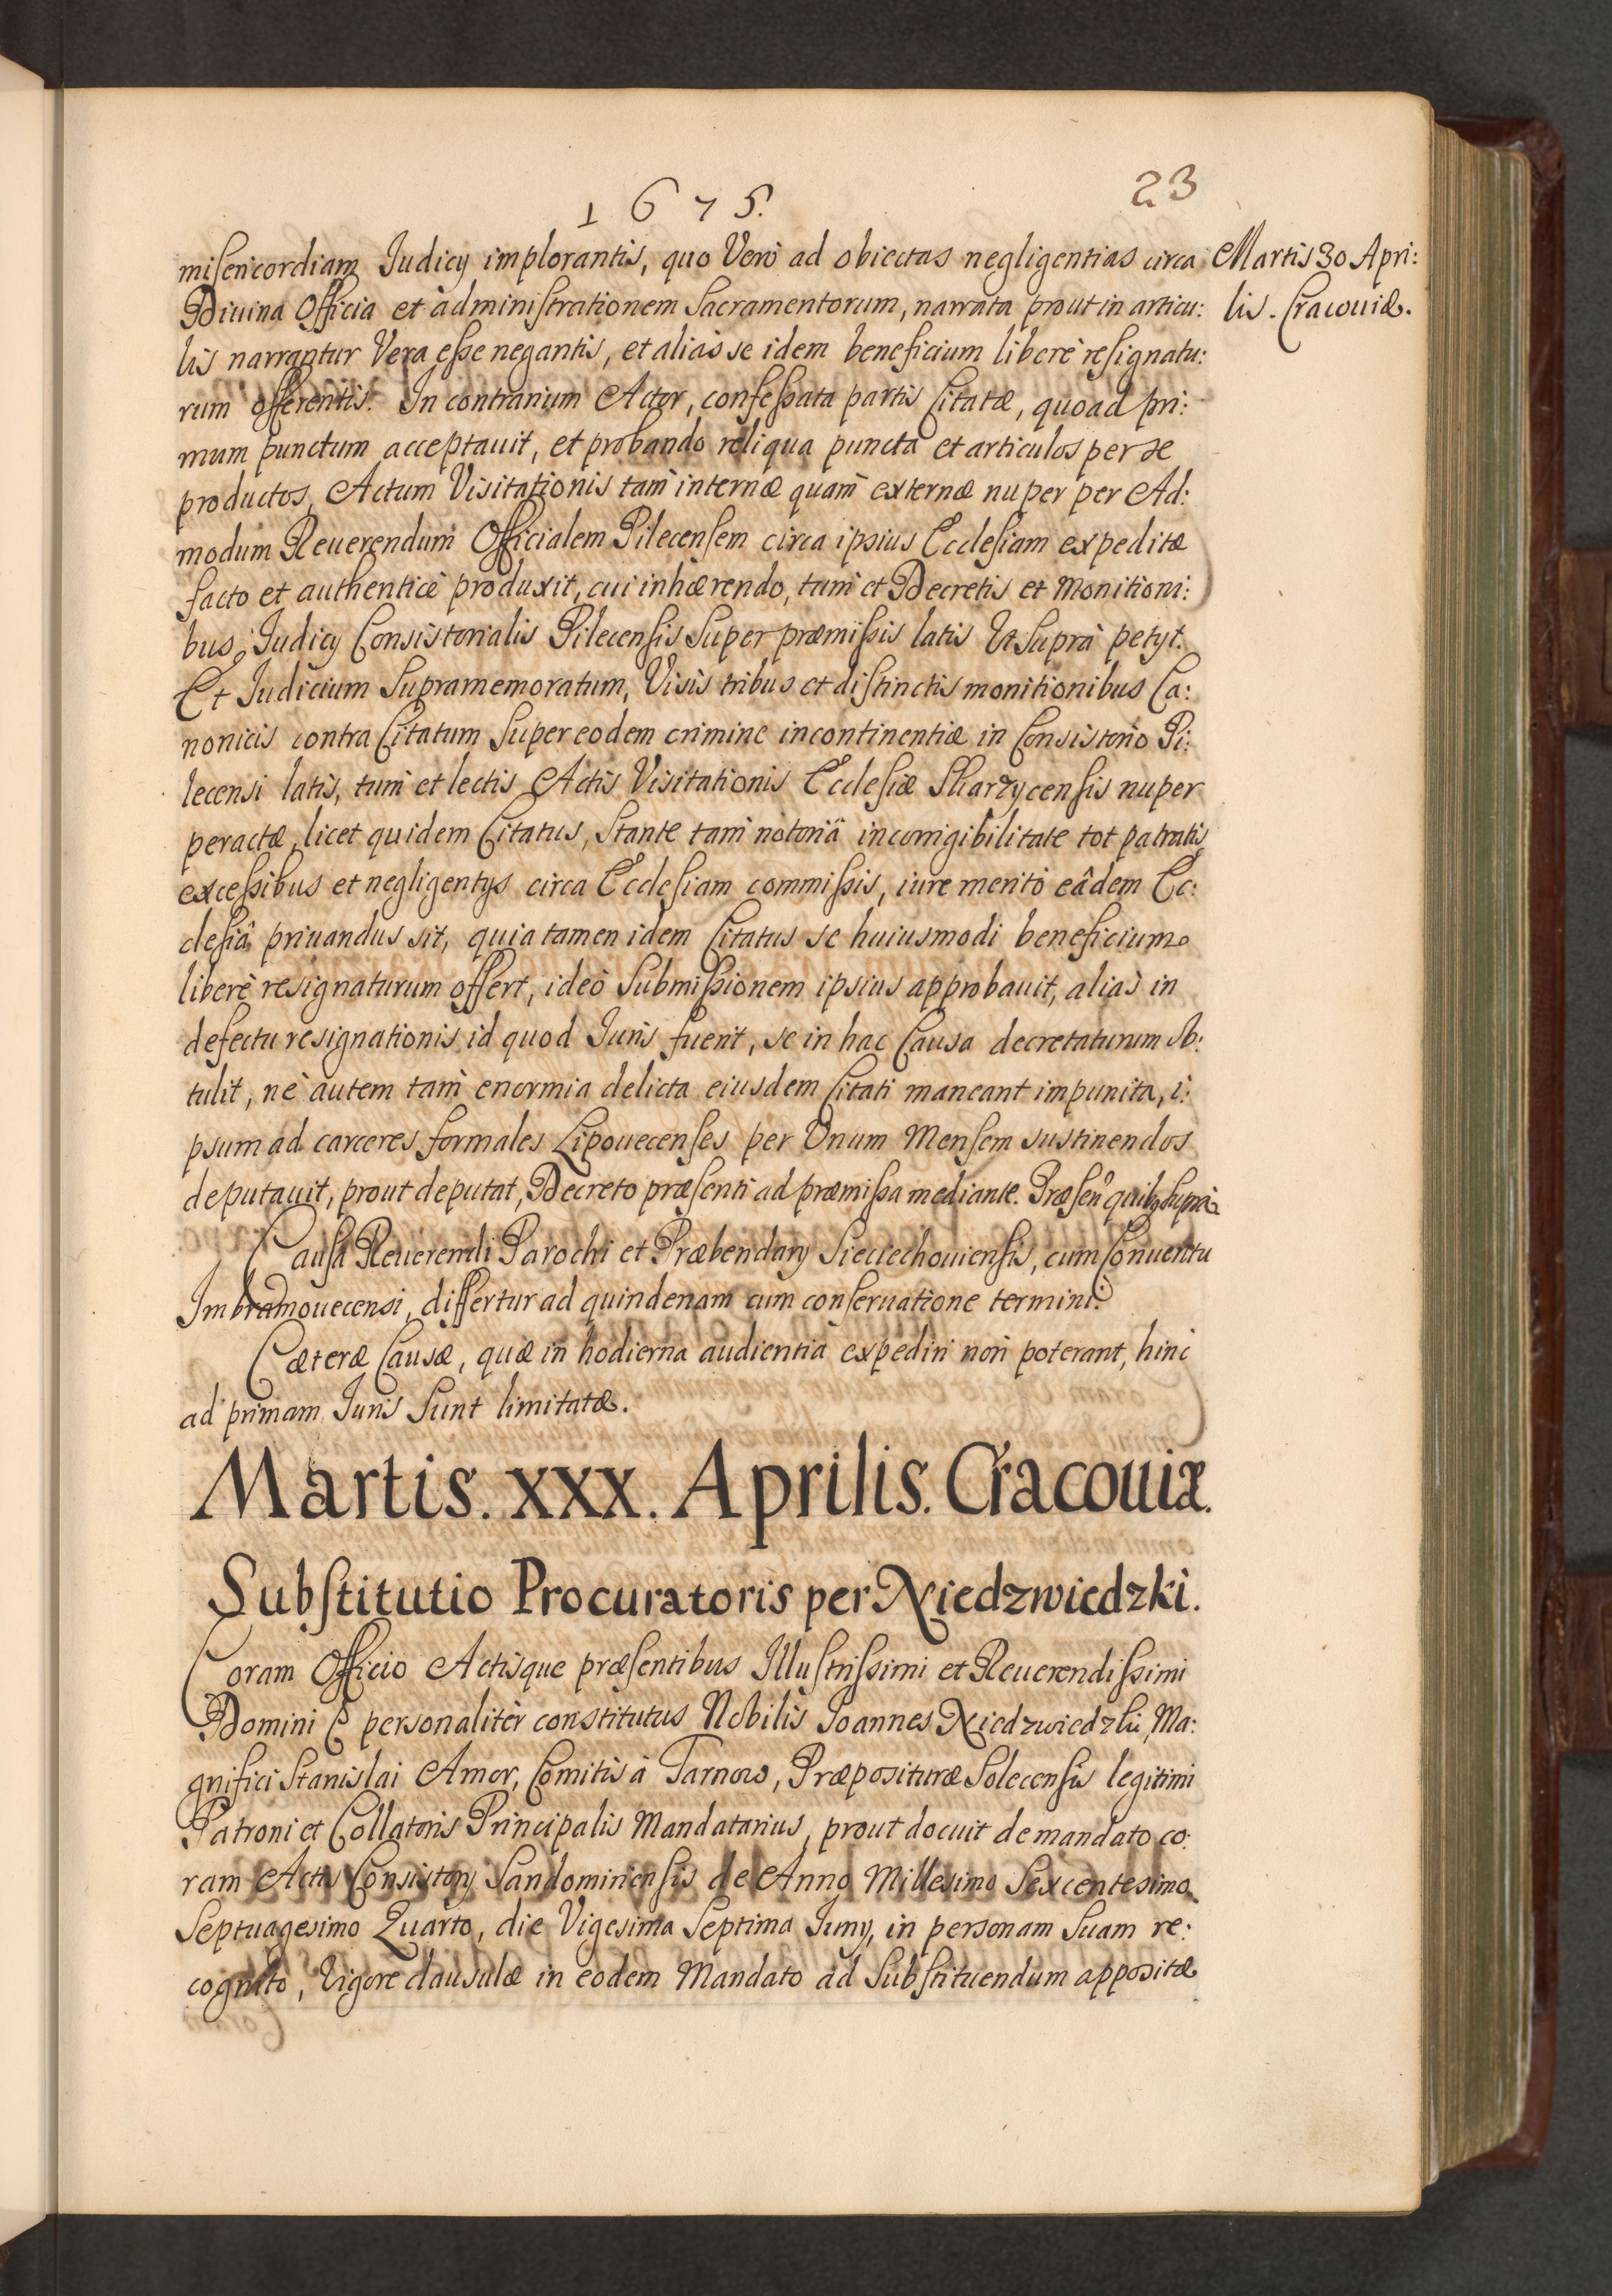 1675.
23
misericordiam Iudicÿ implorantis, quo Verò ad obiectas negligentias circa
Diuina Officia et administrationem Sacramentorum, narrata prout in articu:
lis narrantur Vera esse negantis, et aliàs se idem beneficium liberè resignatu:
rum offerentis. In contrarium Actor, confessata partis Citatæ, quoad pri:
mum punctum acceptauit, et probando reliqua puncta et articulos per se
productos, Actum Visitationis tam internæ quam externæ nuper per Ad:
modum Reuerendum Officialem Pilecensem circa ipsius Ecclesiam expeditæ
facto et authenticè produxit, cui inhærendo, tum et Decretis et Monitioni:
bus Iudicÿ Consistorialis Pilecensis super præmissis latis Ut suprà petÿt.
Et Iudicium supramemoratum, Visis tribus et distinctis monitionibus Ca:
nonicis contra Citatum super eodem crimine incontinentiæ in Consistorio Pi:
lecensi latis, tum et lectis Actis Visitationis Ecclesiæ Skarzycensis nuper
peractæ, licet quidem Citatus, stante tam notoriâ incorrigibilitate tot patratis
excessibus et negligentÿs circa Ecclesiam commissis, iure meritò eâdem Ec:
clesiâ priuandus sit, quia tamen idem Citatus se huiusmodi beneficium
liberè resignaturum offert, ideò submissionem ipsius approbauit, aliàs in
defectu resignationis id quod Iuris fuerit, se in hac Causa decretaturum ob:
tulit, nè autem tam enormia delicta eiusdem Citati maneant impunita, i:
psum ad carceres formales Lipouecenses per Unum Mensem sustinendos
deputauit, prout deputat, Decreto præsenti ad præmissa mediante. Præsen quibȝ suprà
Causa Reuerendi Parochi et Præbendarÿ Sieciechouiensis, cum Conuentu
Imbramouecensi, differtur ad quindenam cum conseruatione termini.
Cæteræ Causæ, quæ in hodierna audientia expediri non poterant, hinc
ad primam Iuris sunt limitatæ.
Martis 30 Apri:
lis. Cracouiæ.
Martis. XXX. Aprilis. Cracouiæ.
Substitutio Procuratoris per Niedzwiedzki.
Coram Officio Actisque præsentibus Illustrissimi et Reuerendissimi
Domini E personalitèr constitutus Nobilis Ioannes Niedzwiedzki, Ma:
gnifici Stanislai Amor, Comitis à Tarnow, Præposituræ Solecensis legitimi
Patroni et Collatoris Principalis Mandatarius, prout docuit de mandato co:
ram Actis Consistorÿ Sandomiriensis de Anno Millesimo Sexcentesimo
Septuagesimo Quarto, die Vigesima Septima Iunÿ, in personam suam re:
cognito, Vigore clausulæ in eodem Mandato ad substituendum appositæ